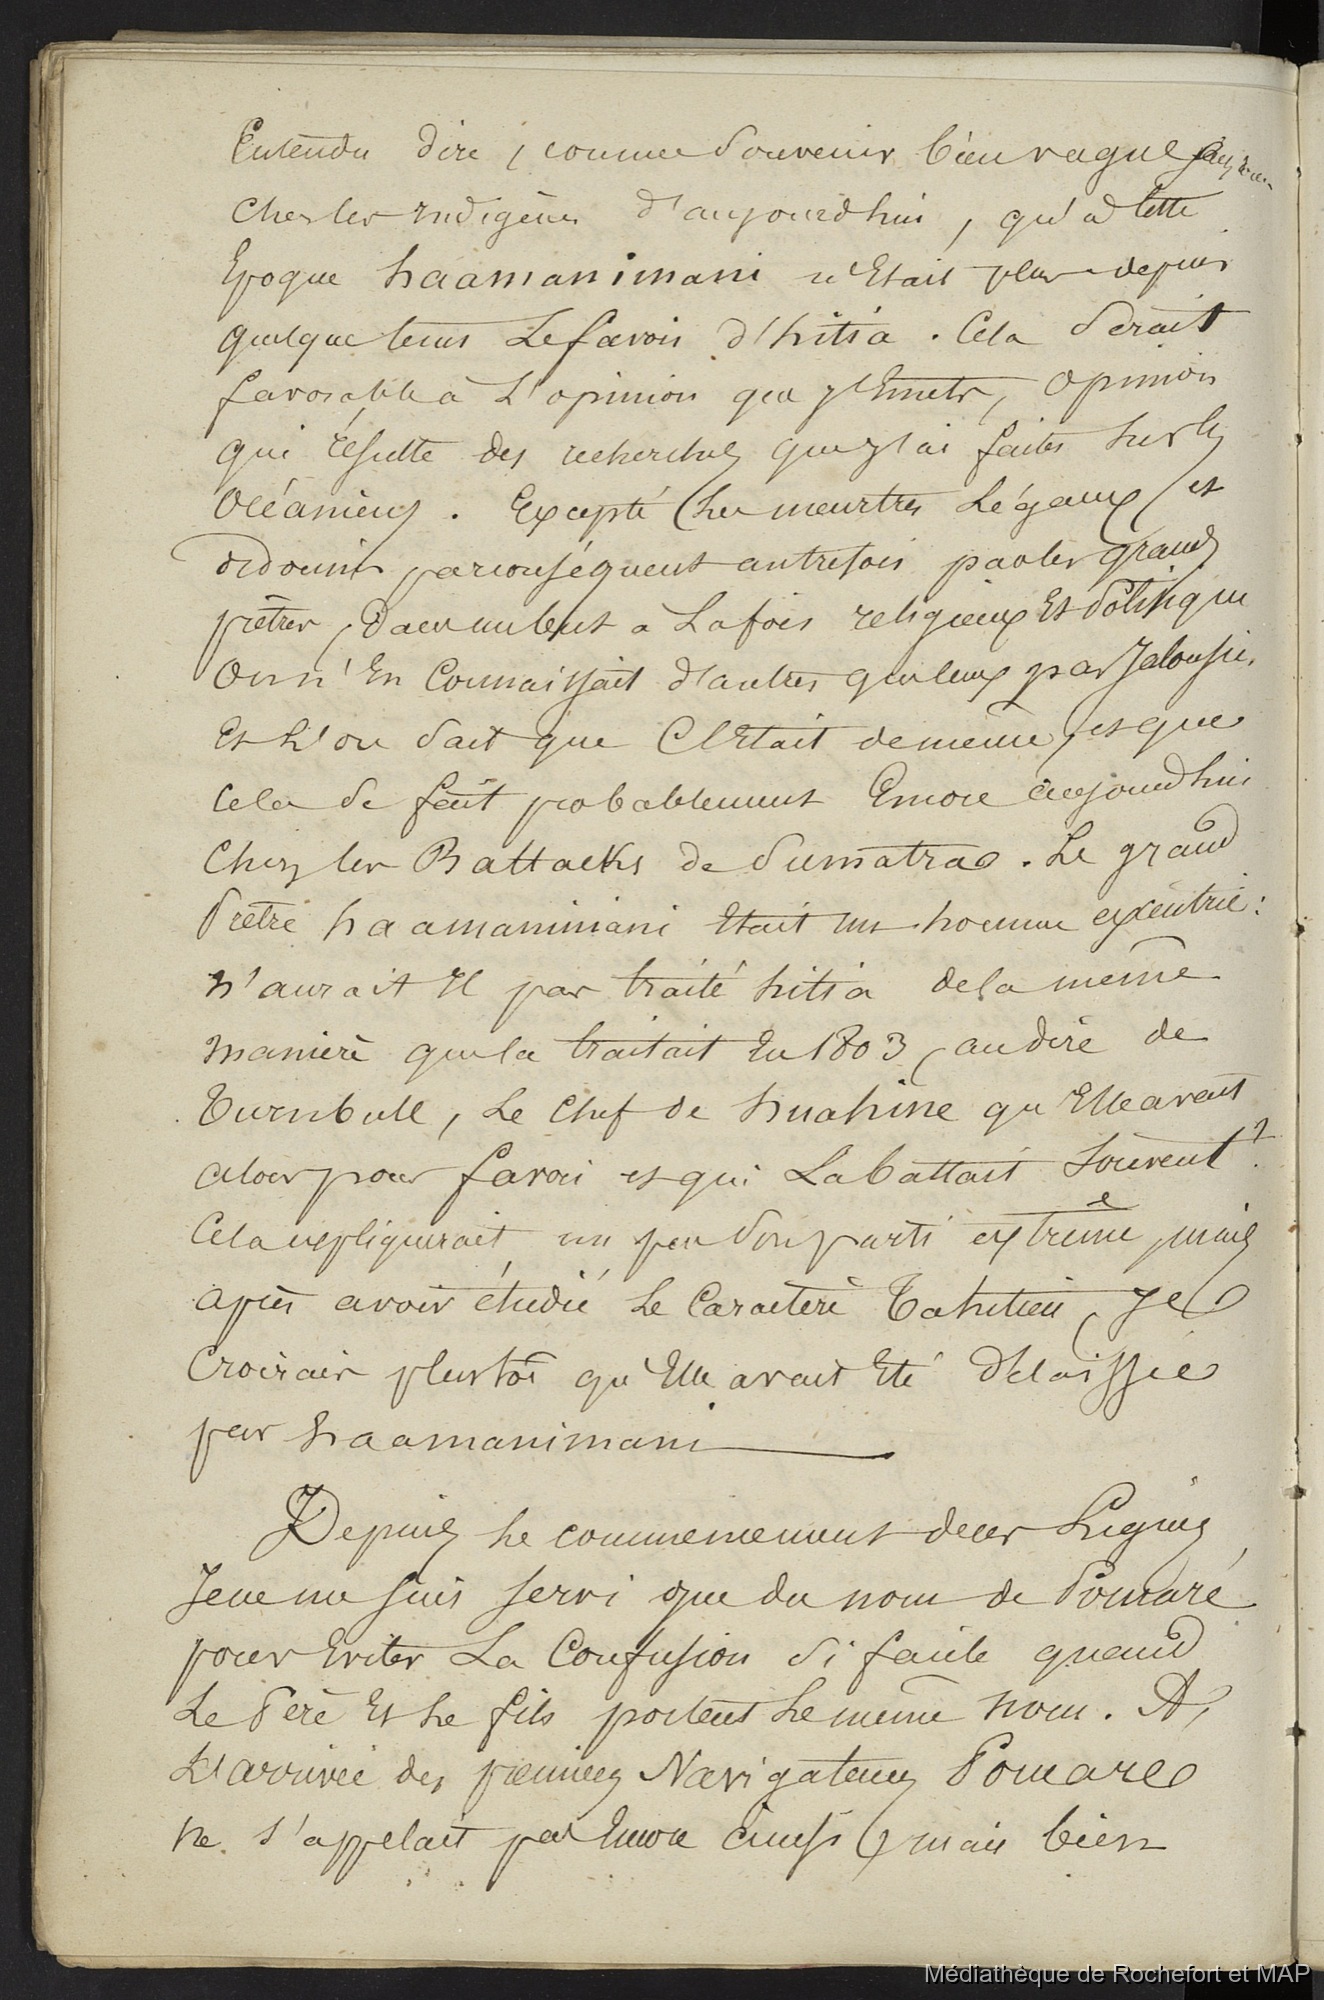 Entendu dire, comme souvenir bien vague
Chez les Indigènes d'aujourd'hui, qu'a cette
Epoque haamanimani n'Etait plus depuis
quelque tems Le favori d'hitia. Cela serait
favorable à L'opinion que j'Emets, opinion
qui résulte des recherches que j'ai faites sur les
Océaniens. Excepté les meurtres Légaux, et
ordonnés par conséquent autrefois par les grands
prêtres, dans un but a La fois religieux Et Politique
On n'En Connaissait d'autres que ceux par Jalousie,
Et L'on sait que C'Etait de même, et que
cela se fait probablement Encore aujourd'hui
Chez les Battacks de Sumatra. Le grand
Prêtre haamanimani Etait un homme excentric:
n'aurait Il pas traité hitia de la même
manière que la traitait En 1803, au dire de
Turnbull, Le Chef de huahine qu'Elle avait
alors pour favori et qui La battait souvent?
Cela expliquerait un peu son parti extrême, mais
après avoir étudié Le Caractère Tahitien, Je
Croirais plustôt qu'Elle avait Eté délaissée
par haamanimani
Depuis Le commencement de ces Lignes
Je ne me suis servi que du nom de Pomaré
pour Eviter La Confusion si facile quand
Le Père Et Le fils portent Le même nom. A
L'arrivée des premiers Navigateurs Pomare
ne s'appelait pas Encore ainsi, mais bien
Médiathèque de Rochefort et MAP